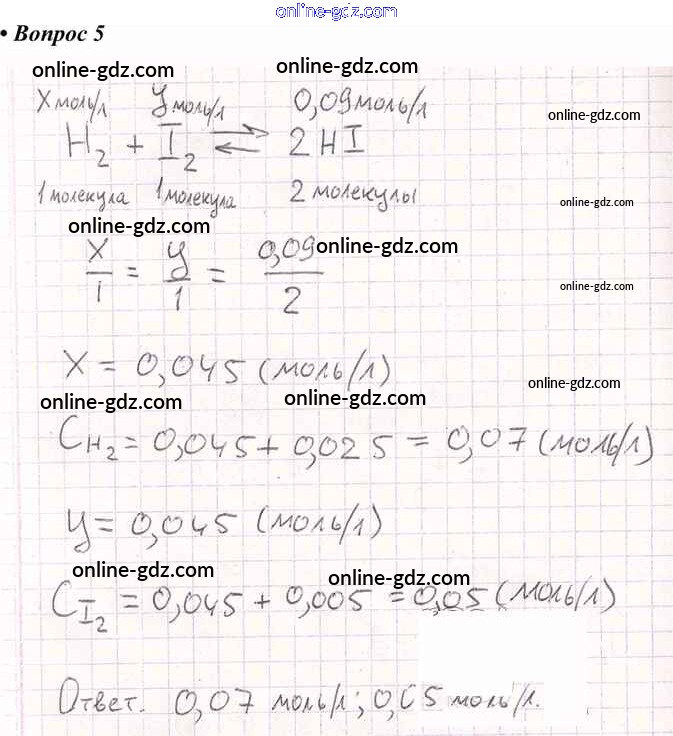 online-gdz.com
• Вопрос 5
online-gdz.com online-gdz.com
X моль/л У моль/л 0,09 моль/л online-gdz.com
H₂ + I₂ ⇄ 2 HI
1 молекула 1 молекула 2 молекулы online-gdz.com
online-gdz.com online-gdz.com
X/1 = У/1 = 0,09/2 online-gdz.com
X = 0,045 (моль/л) online-gdz.com
online-gdz.com online-gdz.com
C H₂ = 0,045 + 0,025 = 0,07 (моль/л)
У = 0,045 (моль/л)
online-gdz.com online-gdz.com
C I₂ = 0,045 + 0,005 = 0,05 (моль/л)
Ответ. 0,07 моль/л; 0,05 моль/л.